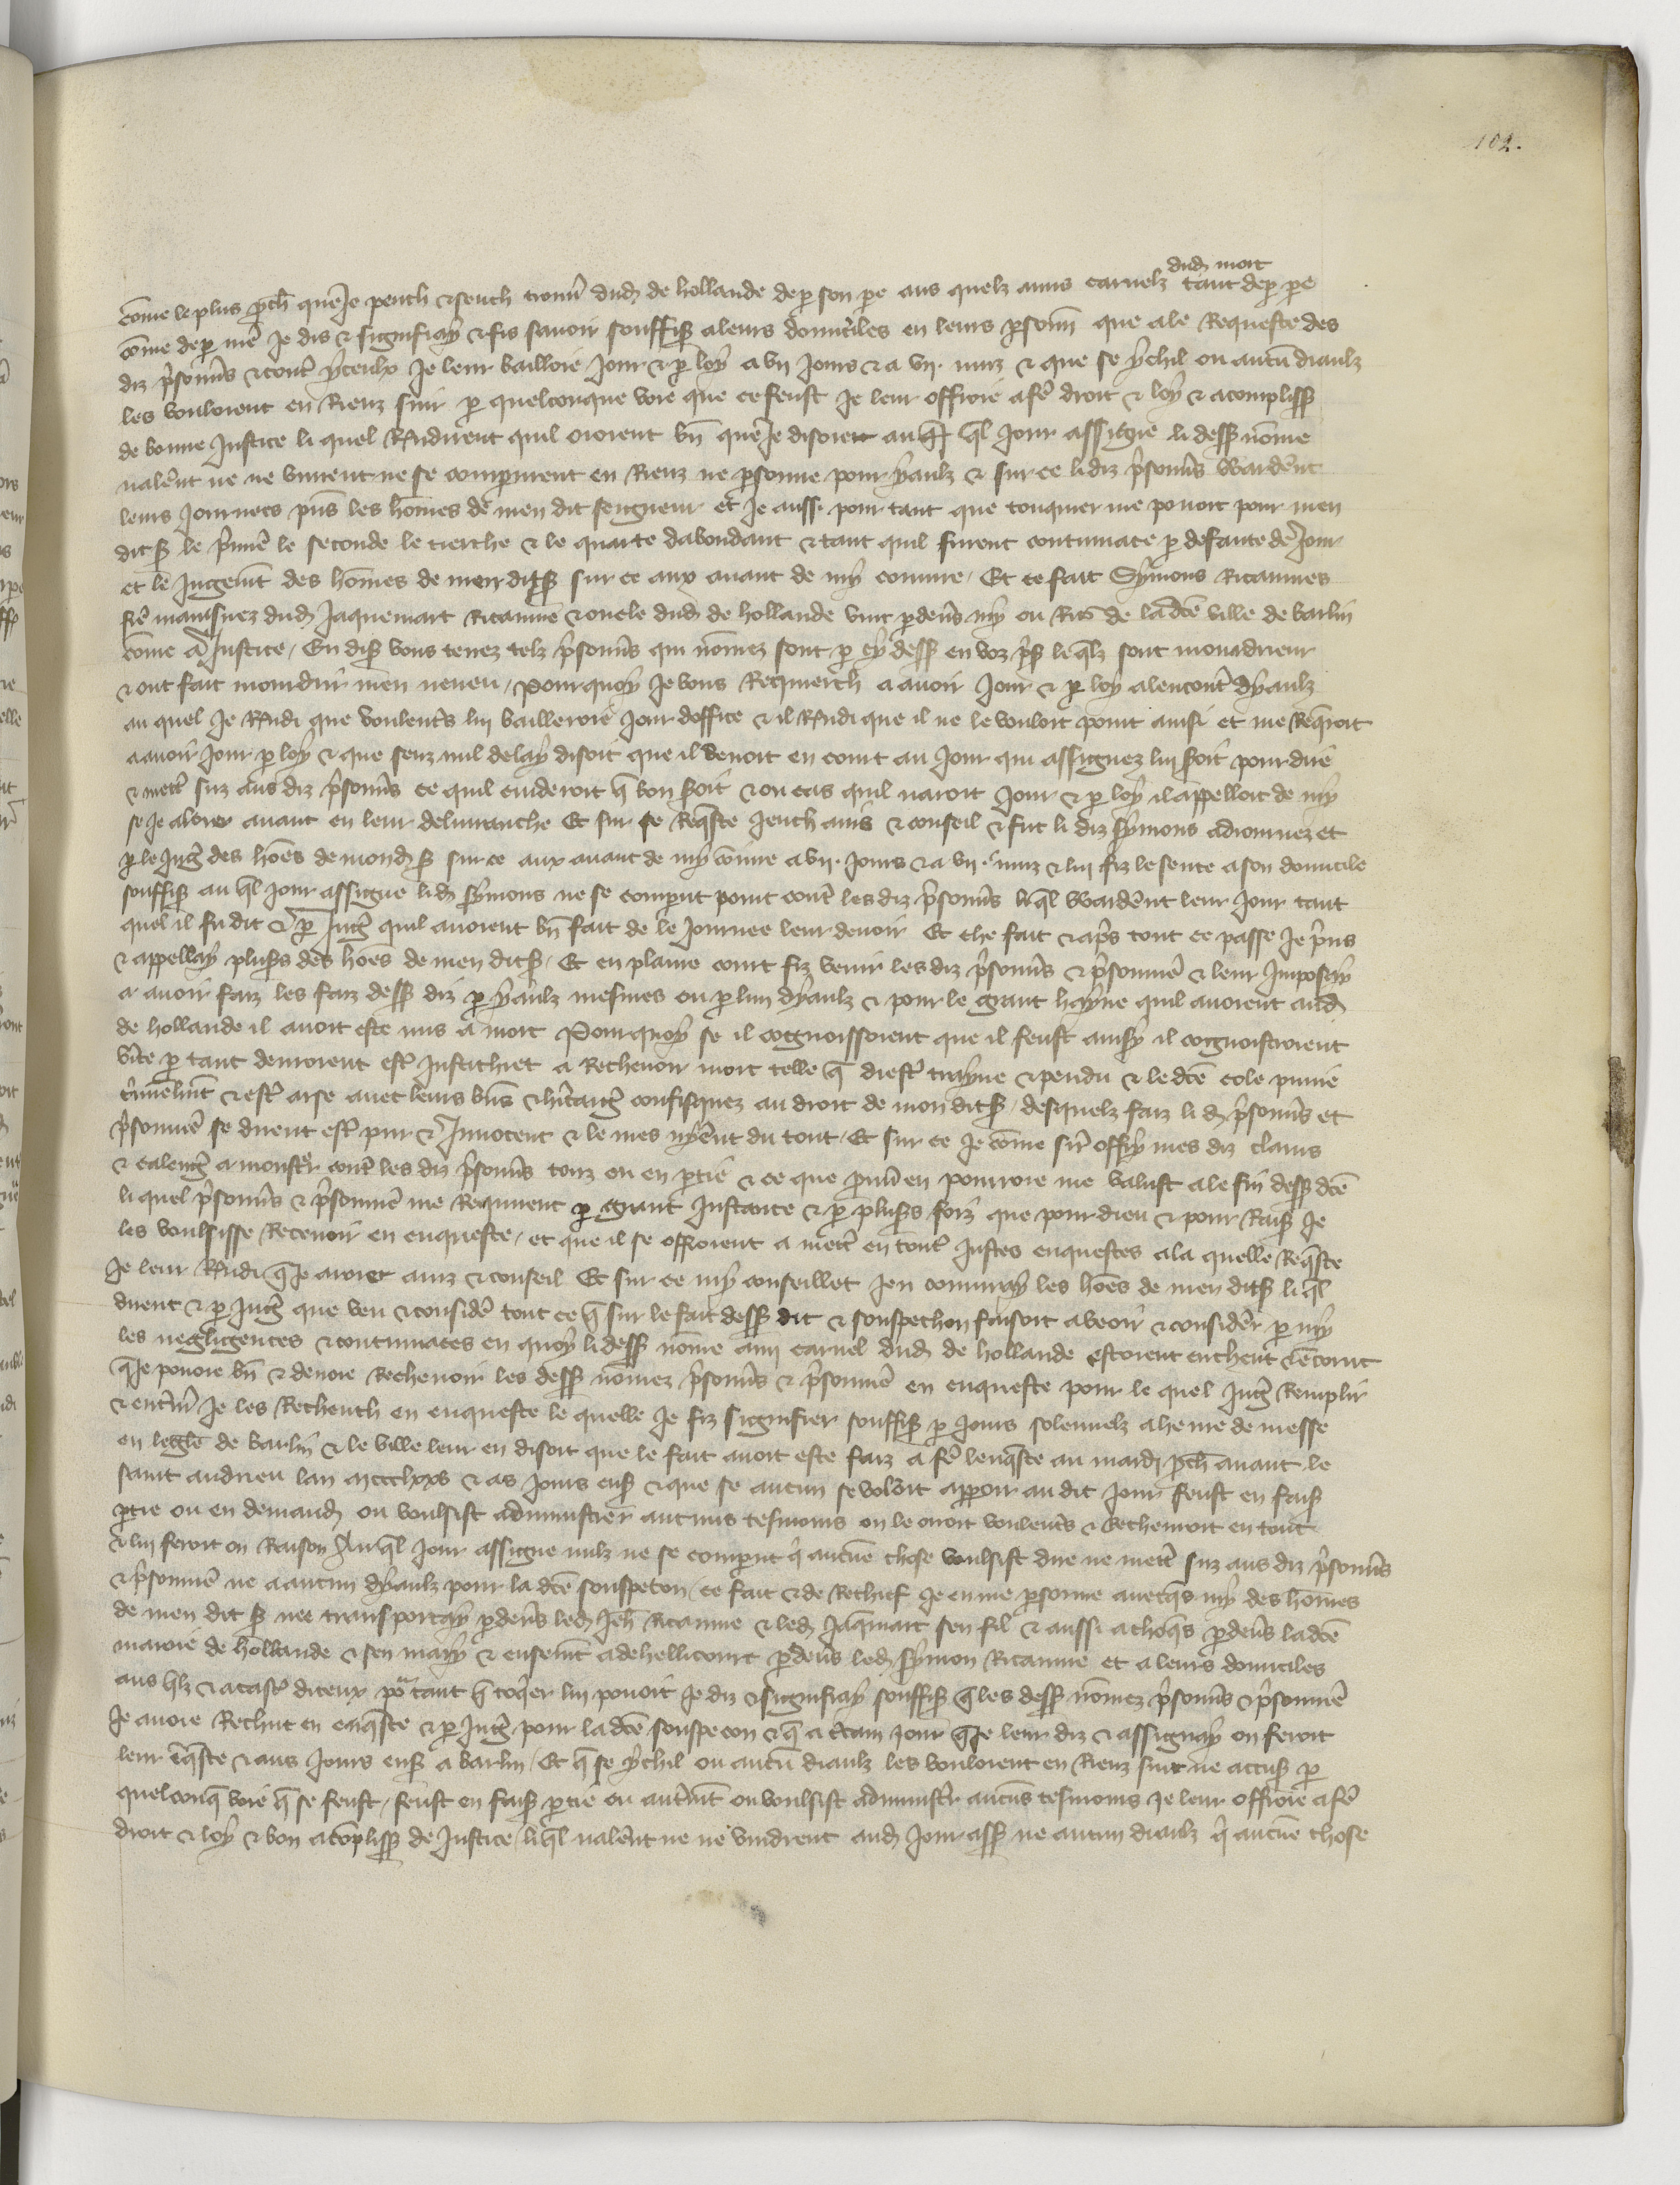 102.
dud mort
cõme le plus ꝓch que Je peuch & seuch trouuer dud de hollande de p son pe aus quelz amis carnelz tant de p pe
cõme de p me Je dis & signifiay & fis sauoir souffis a leurs domiciles en leurs psonn que a le Requeste des
diz p̃sonñs & cont yceulx Je leur bailloie Jour & p loy a vii Jours & a vii. nuiz & que se ychil ou aucũ diaulz
les vouloient en Riens suir p quelconque voie que ce feust Je leur offroie a fẽ droit & loy & acompliss
de bonne Justice li quel Rñdirent quil oioient bñ que Je disoie au q̃l Jour assigne li dess nõme
nalerent ne ne vinrent ne se comparurent en Riens ne psonne pour yaulz & sur ce li diz p̃sonñs Warderent
leurs Journees p̃ns les hõmes de men dit seigneur et Je aussi pour tant que touquier me pouoit pour men
dit s̃ le p̃mie le seconde le tierche & le quarte dabondant & tant quil furent contumace p defaute de Jour
et le Jugemt des hõmes de men dit s̃ sur ce aux auant de my conure / Et ce fait Symons Ricauues
frẽ mainsnez dud Jaquemart Ricauue & oncle dud de hollande vint p deũs my ou lieu de la dcẽ ville de barlin
cõme a Justice / En dis vous tenez telz p̃sonñs qui nõmez sont p cy dess en voz p̃s le q̃lz sont mourdreur
& ont fait mourdrir men neueu / Pour quoy Je vous Requierch a auoir Jour & p loy a lencontre dyaulz
au quel Je Rñdi que voulentẽs lui bailleroie Jour doffice & il Rñdi que il ne le vouloit point ainsi et me Req̃roit
a auoir Jour p loy & que senz nul delay disoit que il venoit en court au Jour qui assignez lui seroit pour dire
& mettre sur aus diz p̃sonñs ce quil cuideroit q̃ bon seroit & ou cas quil naroit Jour & p loy il appelloit de my
se Je aloie auant en leur deliuranche Et sur se Req̃ste Jeuch auis & conseil & fut li diz symons adiournez et
p le Jugt des hõmes de mond s̃ sur ce aux auant de my cõnure a vii. Jours & a vii. nuiz & lui fiz le sente a son domicile
souffis au q̃l Jour assigne li d symons ne se comparut point cont les diz p̃sonñs li q̃l Warderent leur Jour tant
quel il fu dit & p Jugt quil auoient bñ fait de le Journee leur deuoir Et che fait & ap̃s tout ce passe Je p̃ns
& appellay pluss des hões de men dit s̃ / Et en plaine court fiz venir les diz p̃sonñs & p̃sonniere & leur Imposay
a auoir faiz les faiz dess diz p yaulz mesmes ou p lun dyaulz & pour le grant hayne quil auoient aud
de hollande il auoit este mis a mort Pour quoy se il cognoissoient que il feust ainsy il cognoisteroient
vite p tant deuroient est Justichiet a Rechevoir mort telle q̃ diest trayne & pendu & le dcẽ cole punie
crimelmt & est arse auec leurs bñs & heritages confisquez au droit de mon dit s̃ / desquelz faiz li d p̃sonñs et
p̃sonniere se dirent est pur & Innocent & le mes nyerent du tout / Et sur ce Je cõme sir offry mes diz clains
& caleng a monstrer cont les diz p̃sonñs touz ou en ptie & ce que prouuer en pourroie me valust a le fin dess dcẽ
li quel p̃sonñs & p̃sonniere me Requirent p grant Instance & p pluss foiz que pour dieu & pour Rais Je
les voulsisse Recevoir en enqueste / et que il se offroient a mettre en toute Justes enquestes a la quelle Req̃ste
Je leur Rñdi q̃ Je aroie auiz & conseil Et sur ce my conseillet Jen coniuray les hões de men dit s̃ li q̃l
dirent & p Jugt que veu & considere tout ce q̃ sur le fait dess dit & souspechon faisoit a veoir & considerer p my
les negligences & contumaces en quoy li dess nõme ami carnel dud de hollande estoient encheut & encourut
q̃ Je pouoie bñ & deuoie Rechevoir les dess nõmez p̃sonñs & p̃sonniere en enqueste pour le quel Jugt Remplir
& enterin Je les Recheuch en enqueste le quelle Je fiz signifier souffis p Jours solennelz a heure de messe
en legle de barlin & le ville leur en disoit que le fait auoit este faiz a fẽ lenq̃ste au mardi ꝓch auant le
saint andrieu lan mccclxxv & as Jours ens & que se aucun se voloit apparoir au dit Jour feust en fais
ptie ou en demand ou voulsist administrer aucuns tesmoins on le oroit voulentẽs & Recheueroit en tout
& lui feroit on Raison Au q̃l Jour assigne nulz ne se comparut q̃ aucũe chose voulsist dire ne mettre sur aus diz p̃sonñs
& p̃sonniere ne a aucun dyaulz pour la dcẽ souspecon / ce fait & de Rechief Je en me psonne auecqs my des hõmes
de men dit s̃ me transportay p deũs led Jeh Ricauue & led Jaq̃mart sen fil & aussi a choqs p deũs la dcẽ
maroie de hollande & sen mary & ensemt a dehellicourt p deũs led symon Ricauue et a leurs domiciles
aus q̃lz & a casc diceux po tant q̃ toq̃er lui pouoit Je diz & signifiay souffis q̃ les dess nõmez p̃sonñs & p̃sonniere
Je auoie Rechut en enq̃ste & p Jugt pour la dcẽ souspecon & q̃ a ctain Jour q̃ Je leur diz & assignay on feroit
leur enq̃ste & aus Jours ens a barlin / Et q̃ se ychil ou aucũ diaulz les vouloient en Riens suir ne accus p
quelconq̃ voie q̃ se feust / feust en fais ptie ou autremt ou voulsist administrer aucuns tesmoins Je leur offroie a fẽ
droit & loy & bon acõpliss de Justice / li q̃l nalerent ne ne vindrent aud Jour ass ne aucun diaulz q̃ aucũe chose